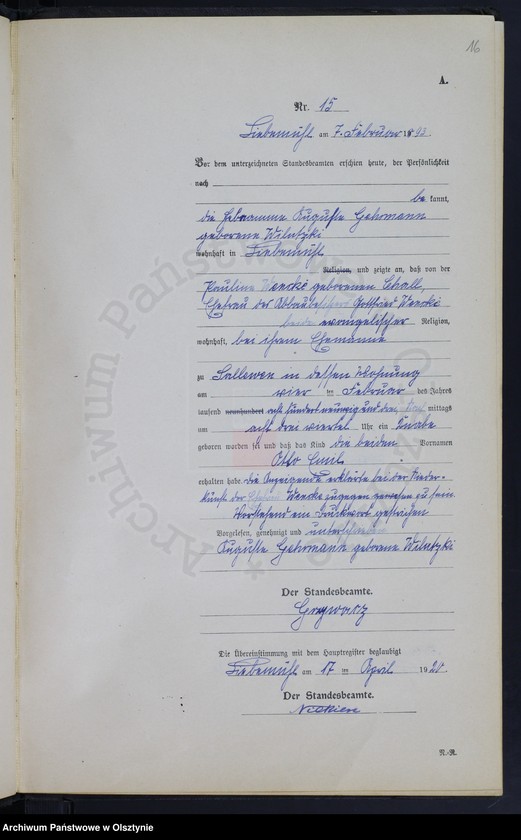 16
A.
Nr. 15
Liebemühl am 7. Februar 1893.
Vor dem unterzeichneten Standesbeamten erschien heute, der Persönlichkeit
nach
bekannt,
die Hebamme Auguste Gehrmann
geborene Wilutzki
wohnhaft in Liebemühl
Religion, und zeigte an, daß von der
Pauline geborenen
Ehefrau des Gottfried
beide evangelischer Religion,
wohnhaft, bei ihrem Ehemanne
zu Sallewen in dessen Wohnung
am vier ten Februar des Jahres
tausend neunhundert acht hundert neunzig und drei mittags
um acht drei viertel Uhr ein Knabe
geboren worden sei und daß das Kind die beiden Vornamen
Otto Emil
erhalten habe. die Anzeigende erklärte bei der Nieder-
kunft der zugegen gewesen zu sein.
Vorstehend ein Druckwort gestrichen
Vorgelesen, genehmigt und unterschrieben
Auguste Gehrmann geborene Wilutzki
Der Standesbeamte.
Die Übereinstimmung mit dem Hauptregister beglaubigt
Liebemühl am 17 ten April 1920.
Der Standesbeamte.
N.-R.
Archiwum Państwowe w Olsztynie